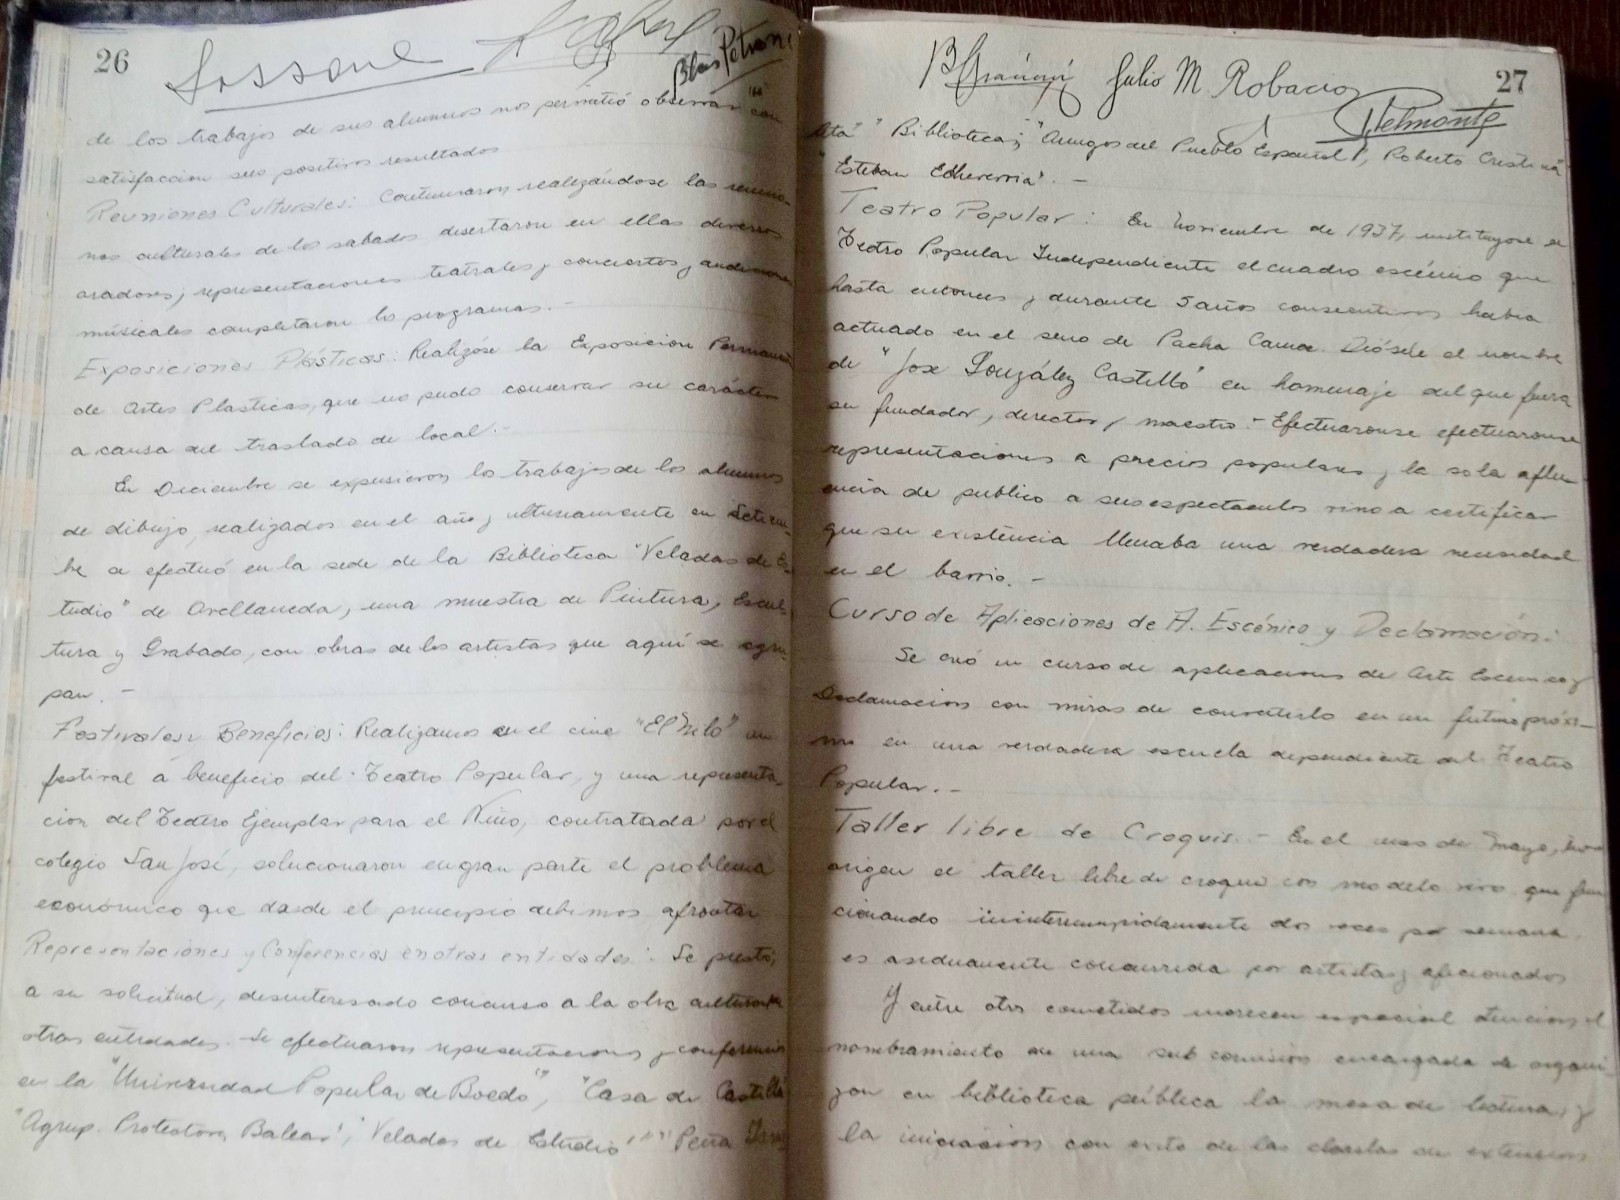 26
Blas Petroni
de los trabajos de sus alumnos nos permitió observar con
satisfaccion sus positivos resultados
Reuniones Culturales: Continuaron realizándose las reunio-
nes culturales de los sabados disertaron en ellas diversos
oradores; representaciones teatrales, conciertos, audiciones
músicales completaron los programas. -
Exposiciones Plásticas: Realizóse la Exposicion Permanente
de Artes Plasticas, que no pudo conservar su carácter
a causa del traslado de local. -
En Diciembre se expusieron los trabajos de los alumnos
de dibujo, realizados en el año, ultimamente en Setiem-
bre se efectuó en la sede de la Biblioteca "Veladas de Es-
tudio" de Avellaneda, una muestra de Pintura, Escul-
tura y Grabado, con obras de los artistas que aquí se agru-
pan. -
Festivales, Beneficios: Realizamos en el cine "El Nilo" un
festival á beneficio del Teatro Popular, y una representa-
cion del Teatro Ejemplar para el Niño, contratada por el
colegio San José, solucionaron en gran parte el problema
económico que desde el principio debimos afrontar
Representaciones y Conferencias en otras entidades: Se prestó,
a su solicitud, desinteresado concurso a la obra cultural
otras entidades. Se efectuaron representaciones y conferencias
en la "Universidad Popular de Boedo", "Casa de Castilla"
"Agrup. Protectora Balear", "Velada de Estudio" "Peña
27
Julio M. Robacio
Belmonte
"Biblioteca; "Amigos del Pueblo Español", Roberto
"Esteban Echeverria". -
Teatro Popular: En Noviembre de 1937, instituyose en
Teatro Popular Independiente el cuadro escénico que
hasta entonces y durante 5 años consecutivos habia
actuado en el seno de Pacha Camac. Diósele el nombre
de "Jose González Castillo" en homenaje del que fuera
su fundador, director y maestro. - Efectuaronse efectuaronse
representaciones a precios populares y la sola aflu-
encia de publico a sus espectaculos vino a certificar
que su existencia llenaba una verdadera necesidad
en el barrio. -
Curso de Aplicaciones de A. Escénico y Declamación:
Se creó un curso de aplicaciones de Arte Escenico y
Declamacion con miras de convertirlo en un futuro próxi-
mo en una verdadera escuela dependiente del Teatro
Popular. -
Taller libre de Croquis. - En el mes de Mayo,
origen el taller libre de croquis con modelo vivo que fun
cionando ininterrumpidamente dos veces por semana
es asiduamente concurrida por artistas y aficionados
Y entre otros cometidos merecen especial atencion el
nombramiento de una sub comision encargada de organi-
zar en biblioteca pública la mesa de lectura, y
la iniciacion con exito de las charlas de extension